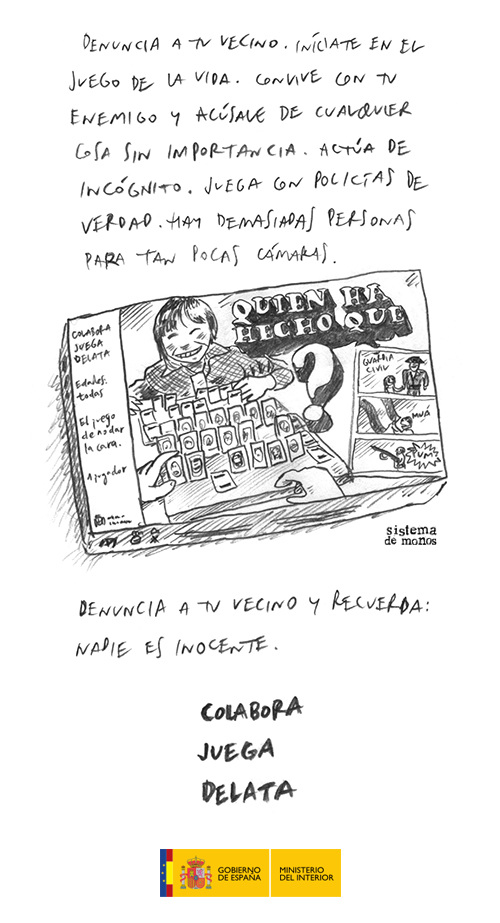 DENUNCIA A TU VECINO. INÍCIATE EN EL
JUEGO DE LA VIDA. CONVIVE CON TU
ENEMIGO Y ACÚSALE DE CUALQUIER
COSA SIN IMPORTANCIA. ACTÚA DE
INCÓGNITO. JUEGA CON POLICÍAS DE
VERDAD. HAY DEMASIADAS PERSONAS
PARA TAN POCAS CÁMARAS.
COLABORA
JUEGA
DELATA
Edades:
todas
El juego
de no dar
la cara.
1 jugador
QUIEN HA
HECHO QUE
?
GUARDIA
CIVIL
MUÁ
¡PUM!
sistema
de monos
DENUNCIA A TU VECINO Y RECUERDA:
NADIE ES INOCENTE.
COLABORA
JUEGA
DELATA
GOBIERNO
DE ESPAÑA
MINISTERIO
DEL INTERIOR